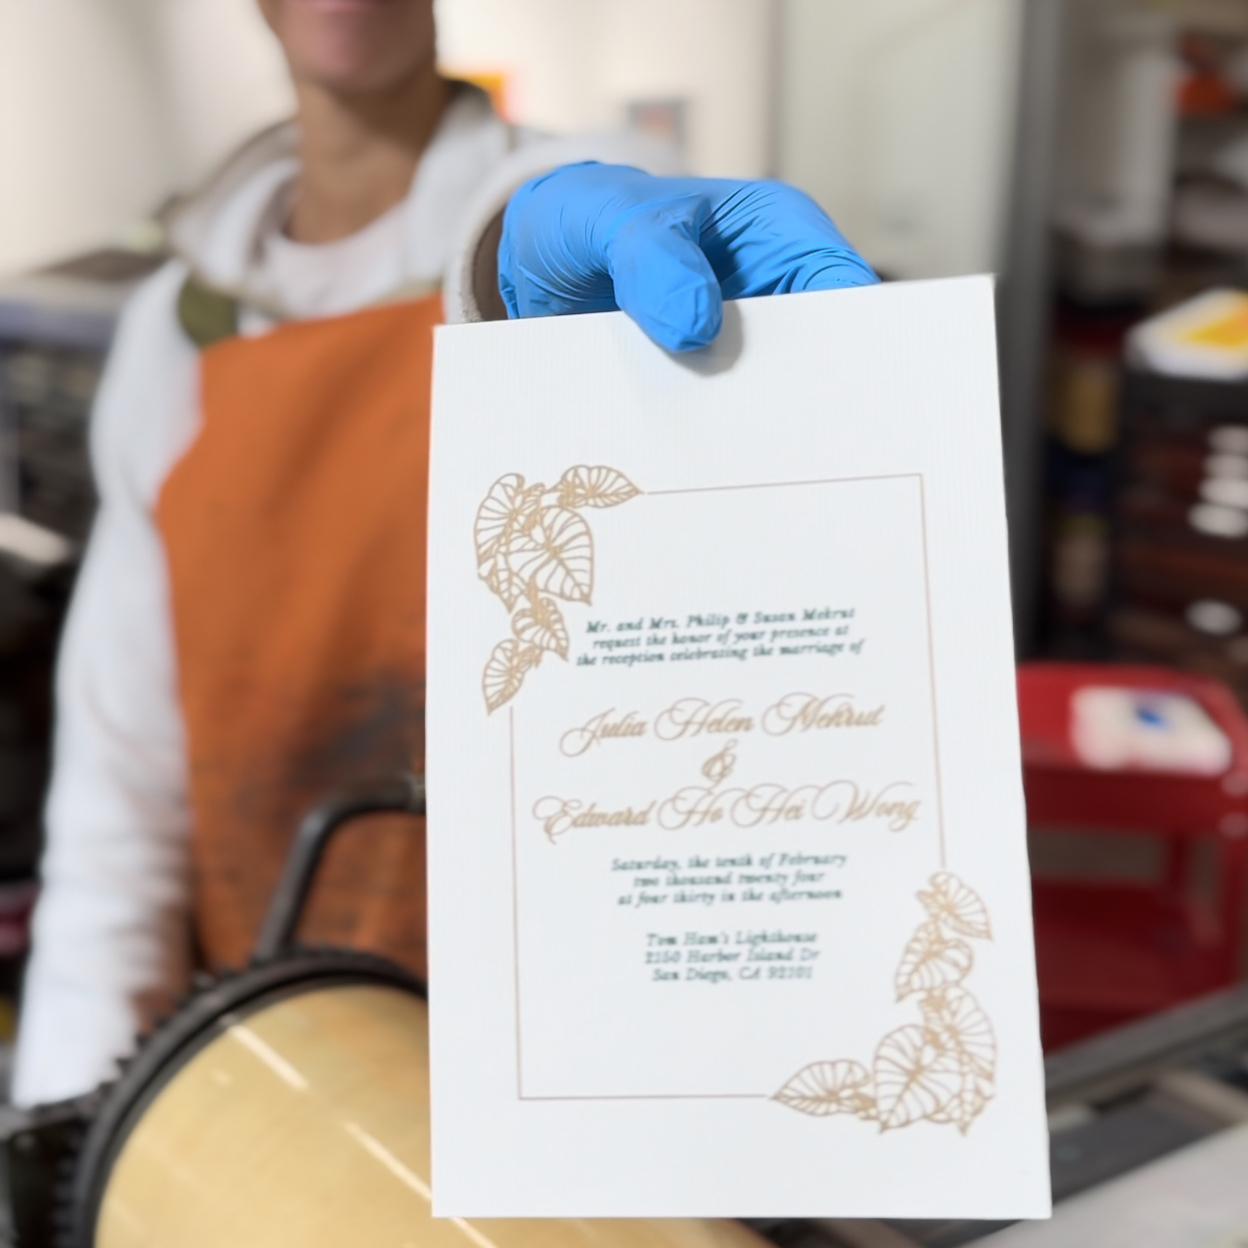 Mr. and Mrs. Philip & Susan Mehrut
request the honor of your presence at
the reception celebrating the marriage of
Julia Helen Mehrut
&
Edward Ho Hei Wong
Saturday, the tenth of February
two thousand twenty four
at four thirty in the afternoon
Tom Ham's Lighthouse
2150 Harbor Island Dr
San Diego, CA 92101